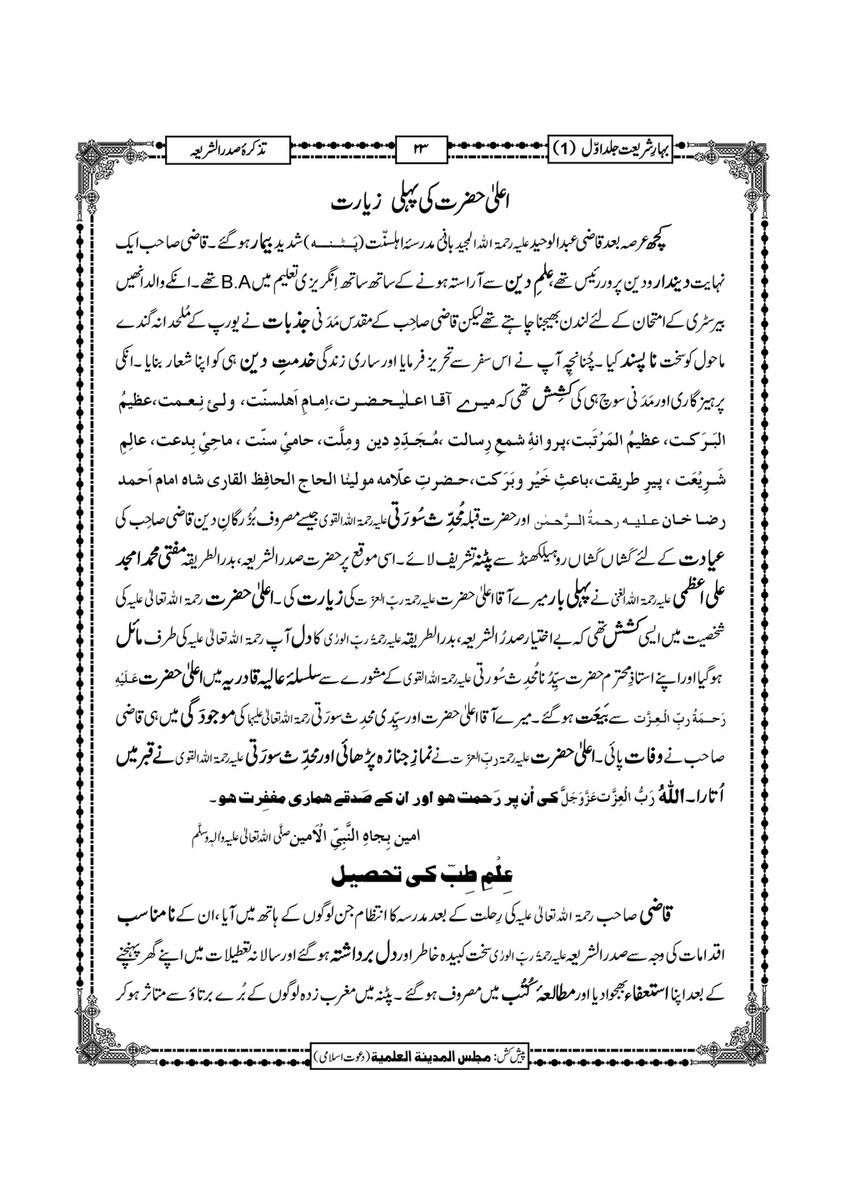 بہارِ شریعت جلد اوّل (1)
۲۳
تذکرۂ صدر الشریعہ
اعلیٰ حضرت کی پہلی زیارت
کچھ عرصہ بعد قاضی عبدالوحید علیہ رحمۃ اللہ المجید بانی مدرسۂ اہلسنّت (پَٹْنہ) شدید بیمار ہو گئے ۔ قاضی صاحب ایک
نہایت دیندار و دین پرور رئیس تھے، علمِ دین سے آراستہ ہونے کے ساتھ ساتھ اِنگریزی تعلیم میں B.A تھے۔ انکے والد انھیں
بیرسٹری کے امتحان کے لئے لندن بھیجنا چاہتے تھے لیکن قاضی صاحِب کے مقدس مَدَنی جذبات نے یورپ کے مُلحدانہ گندے
ماحول کو سخت ناپسند کیا ۔ چُنانچِہ آپ نے اس سفر سے تحریز فرمایا اور ساری زندگی خدمتِ دین ہی کو اپنا شعار بنایا ۔ انکی
پرہیز گاری اور مَدَنی سوچ ہی کی کشِش تھی کہ میرے آقا اعلیٰحضرت، اِمامِ اَھلسنّت، ولیٔ نِعمت، عظیمُ
البَرَکت، عظیمُ المَرْتَبت، پروانۂ شمعِ رِسالت، مُجَدِّدِ دین ومِلَّت، حامیٔ سنّت، ماحیٔ بِدعت، عالِمِ
شَرِیْعَت، پیرِ طریقت، باعثِ خَیْر وبَرَکت، حضرتِ علّامہ مولیٰنا الحاج الحافِظ القاری شاہ امام اَحمد
رضا خان علیہ رحمۃُ الرَّحمٰن اور حضرت قبلہ مُحدِّث سُورَتی علیہ رحمۃ اللہ القوی جیسے مصروف بُزُرگانِ دین قاضی صاحِب کی
عیادت کے لئے کَشاں کَشاں روہیلکھنڈ سے پٹنہ تشریف لائے ۔ اسی موقع پر حضرت صدر الشریعہ، بدر الطریقہ مفتی محمد امجد
علی اعظمی علیہ رحمۃ اللہ الغنی نے پہلی بار میرے آقا اعلیٰ حضرت علیہ رحمۃ ربّ العزّت کی زیارت کی ۔ اعلیٰ حضرت رحمۃ اللہ تعالیٰ علیہ کی
شخصیت میں ایسی کشش تھی کہ بے اختیار صدرُ الشریعہ، بدر الطریقہ علیہ رحمۃُ ربّ الورٰی کا دل آپ رحمۃ اللہ تعالیٰ علیہ کی طرف مائل
ہو گیا اور اپنے استاذِ محترم حضرت سیِّدُنا مُحدِث سُورتی علیہ رحمۃ اللہ القوی کے مشورے سے سلسلۂ عالیہ قادریہ میں اعلیٰ حضرت عَلَیْہِ
رَحمَۃُ ربِّ الْعِزَّت سے بَیعَت ہو گئے ۔ میرے آقا اعلیٰ حضرت اور سیّدی محدِث سورَتی رحمۃ اللہ تعالیٰ علیہا کی موجودگی میں ہی قاضی
صاحب نے وفات پائی ۔ اعلیٰ حضرت علیہ رحمۃ ربّ العزّت نے نمازِ جنازہ پڑھائی اور محدِّث سورَتی علیہ رحمۃ اللہ القوی نے قبر میں
اُتارا ۔ اللّٰہُ رَبُّ الْعِزَّت عَزَّوَجَلَّ کی اُن پر رَحمت ھو اور ان کے صَدقے ھماری مغفرت ھو ۔
امین بِجاہِ النَّبِیِّ الْاَمین صلَّی اللہ تعالیٰ علیہ والہٖ وسلَّم
عِلْمِ طِبّ کی تحصیل
قاضی صاحب رحمۃ اللہ تعالیٰ علیہ کی رِحلت کے بعد مدرسہ کا انتظام جن لوگوں کے ہاتھ میں آیا، ان کے نامناسب
اقدامات کی وجہ سے صدر الشریعہ علیہ رحمۃُ ربّ الورٰی سخت کبیدہ خاطر اور دل برداشتہ ہو گئے اور سالانہ تعطیلات میں اپنے گھر پہنچنے
کے بعد اپنا استعفاء بھجوا دیا اور مطالعۂ کُتُب میں مصروف ہو گئے ۔ پٹنہ میں مغرب زدہ لوگوں کے بُرے برتاؤ سے متاثر ہو کر
پیش کش: مجلس المدینۃ العلمیۃ (دعوت اسلامی)